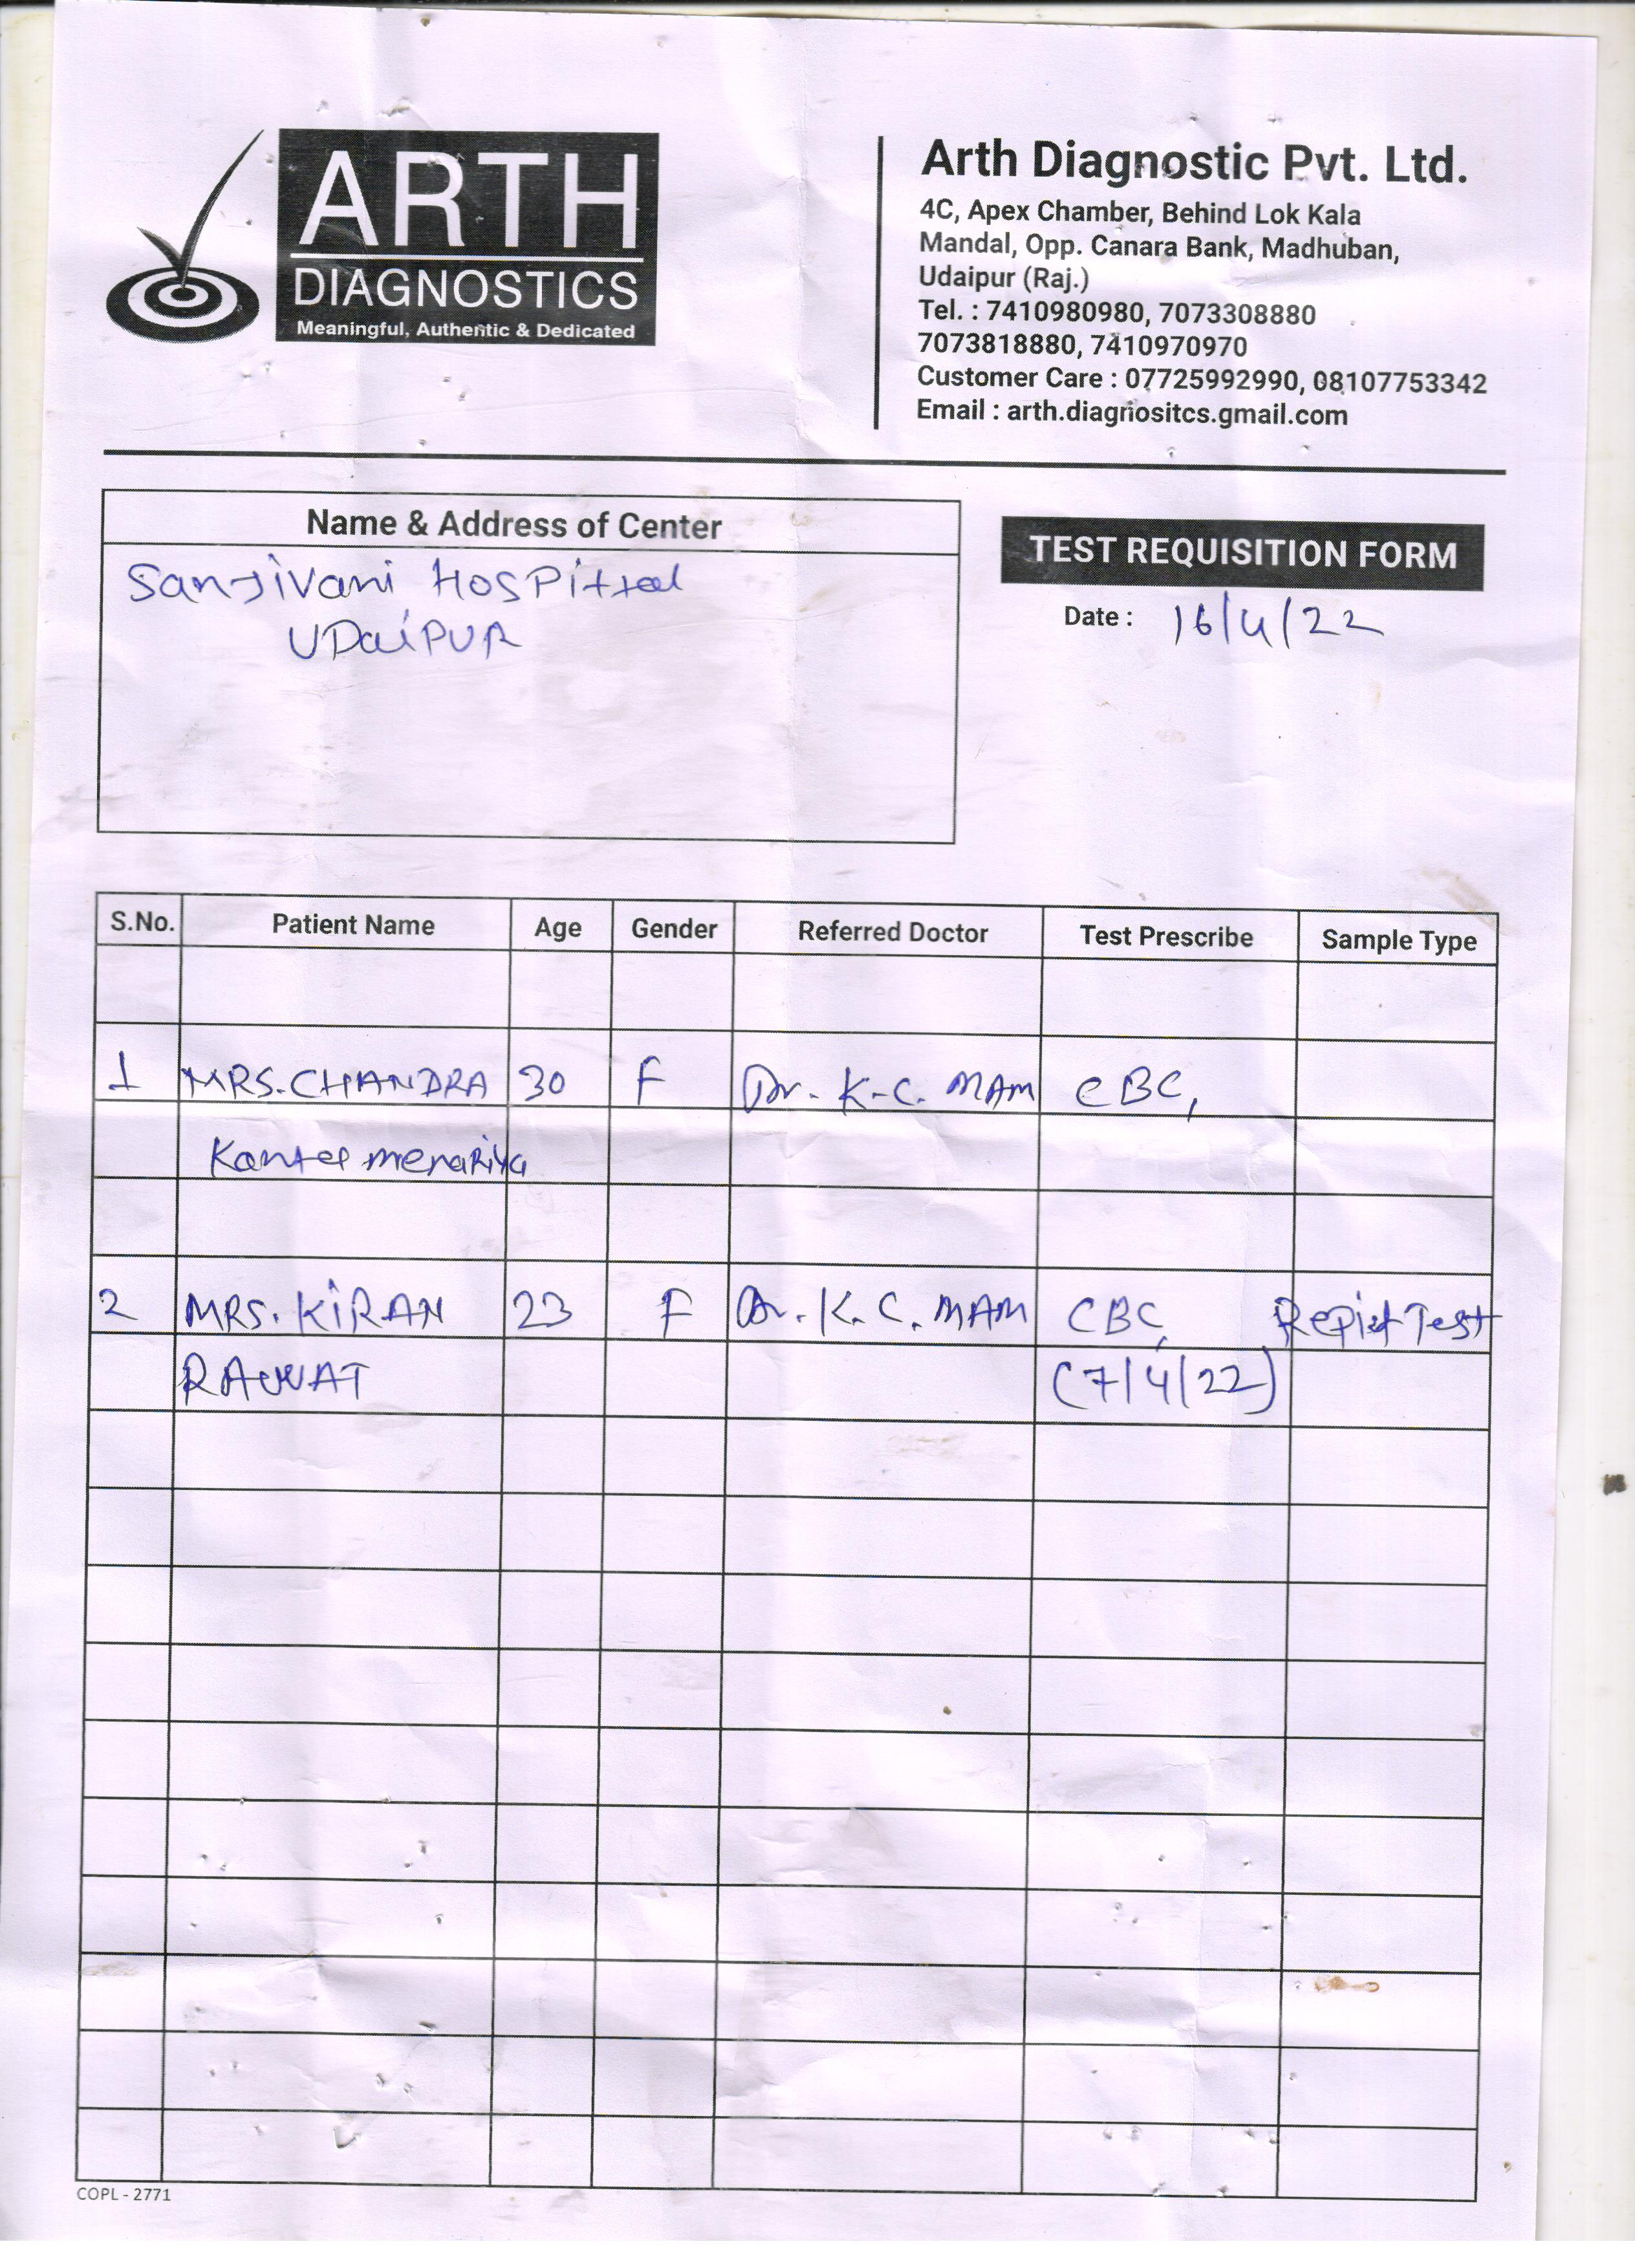 ARTH
DIAGNOSTICS
Meaningful, Authentic & Dedicated
Arth Diagnostic Pvt. Ltd.
4C, Apex Chamber, Behind Lok Kala
Mandal, Opp. Canara Bank, Madhuban,
Udaipur (Raj.)
Tel. : 7410980980, 7073308880
7073818880, 7410970970
Customer Care : 07725992990, 08107753342
Email : arth.diagnositcs.gmail.com
Name & Address of Center
SanJivani HosPital
UDaiPUR
TEST REQUISITION FORM
Date : 16/4/22
S.No. Patient Name Age Gender Referred Doctor Test Prescribe Sample Type
1 MRS. CHANDRA 30 F Dr. K.C. MAM CBC,
Kanta menaRiya
2 MRS. KiRAN 23 F Dr. K.C. MAM CBC, RePiet Test
RAWAT (7/4/22)
COPL - 2771